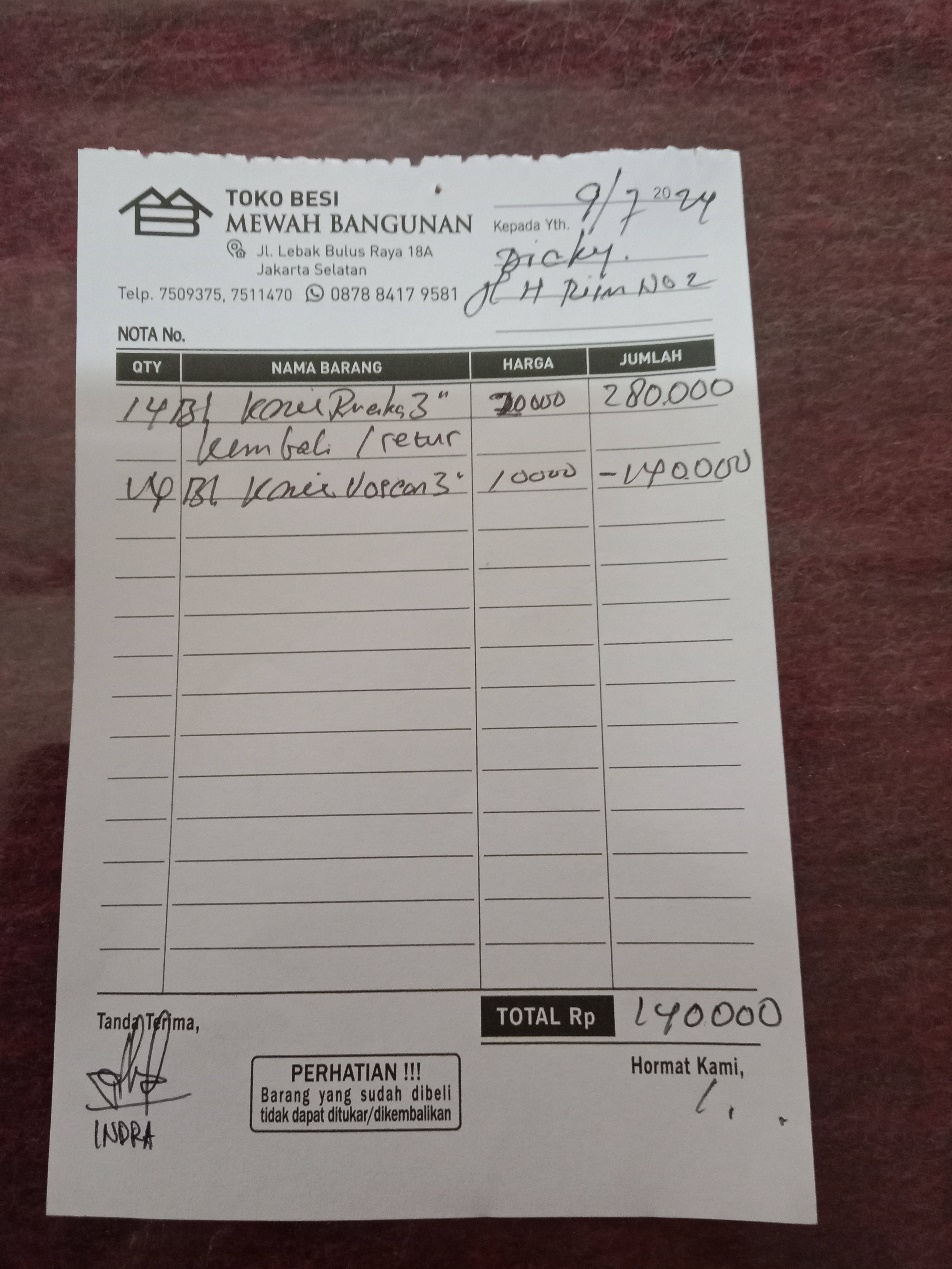 TOKO BESI
MEWAH BANGUNAN
Jl. Lebak Bulus Raya 18A
Jakarta Selatan
Telp. 7509375, 7511470 0878 8417 9581
9/7 2024
Kepada Yth.
Dicky.
Jl H No 2
NOTA No.
QTY NAMA BARANG HARGA JUMLAH
14 Bl 3" 20000 280.000
kembali / retur
14 Bl 3" 10000 -140.000
TOTAL Rp 140.000
Tanda Terima,
INDRA
PERHATIAN !!!
Barang yang sudah dibeli
tidak dapat ditukar/dikembalikan
Hormat Kami,